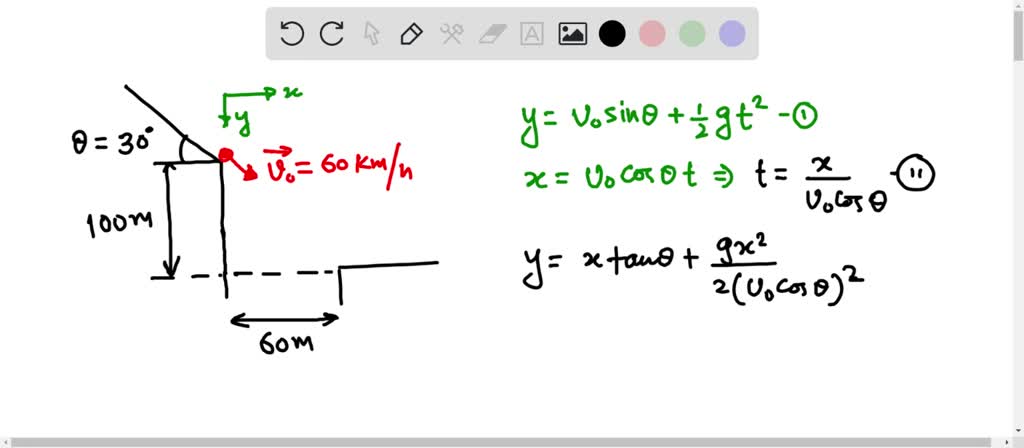 x
y
θ = 30°
v₀ = 60 km/h
100m
60m
y = v₀ sinθ + ½ g t² - ①
x = v₀ cosθ t ⇒ t = x / v₀ cosθ - ⑪
y = x tanθ + gx² / 2(v₀ cosθ)²